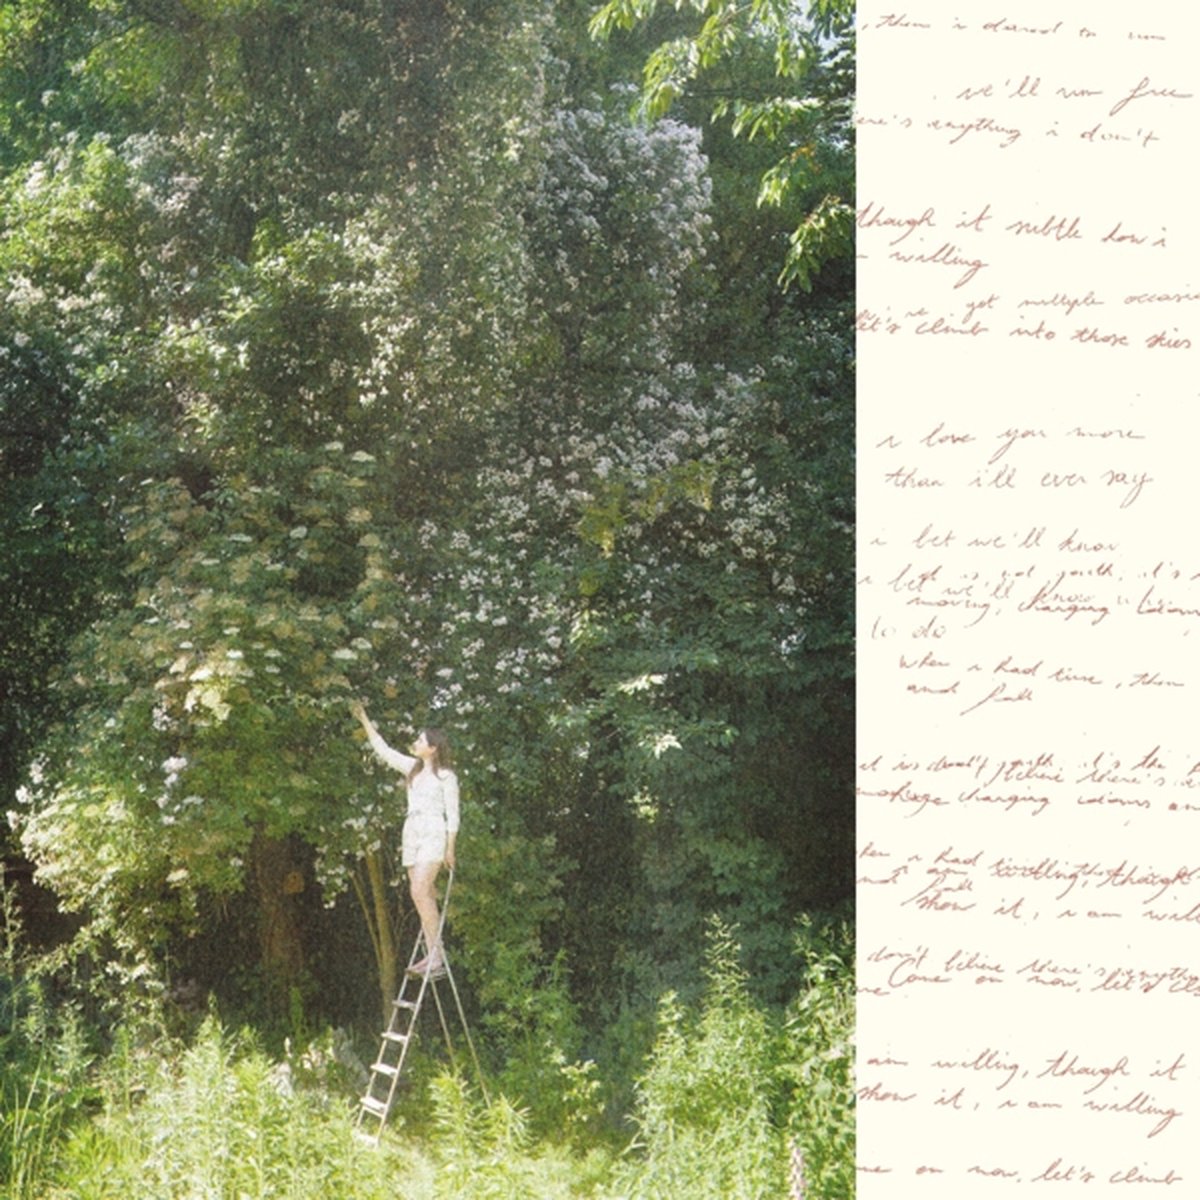 , then i
we'll run free
ere's anything i don't
though it subtle how i
willing
got multiple occasi
let's climb into those skies
i love you more
than i'll ever say
i bet we'll know
it is not youth, it's
i bet we'll know
moving, changing
to do
when i had time, then
and fall
it is youth. it's the
believe there's
changing
hen i had
i am willing, though
fall
show it, i am will
don't believe there's anything
Come on now, let's cl
am willing, though it
show it, i am willing
e on now, let's climb